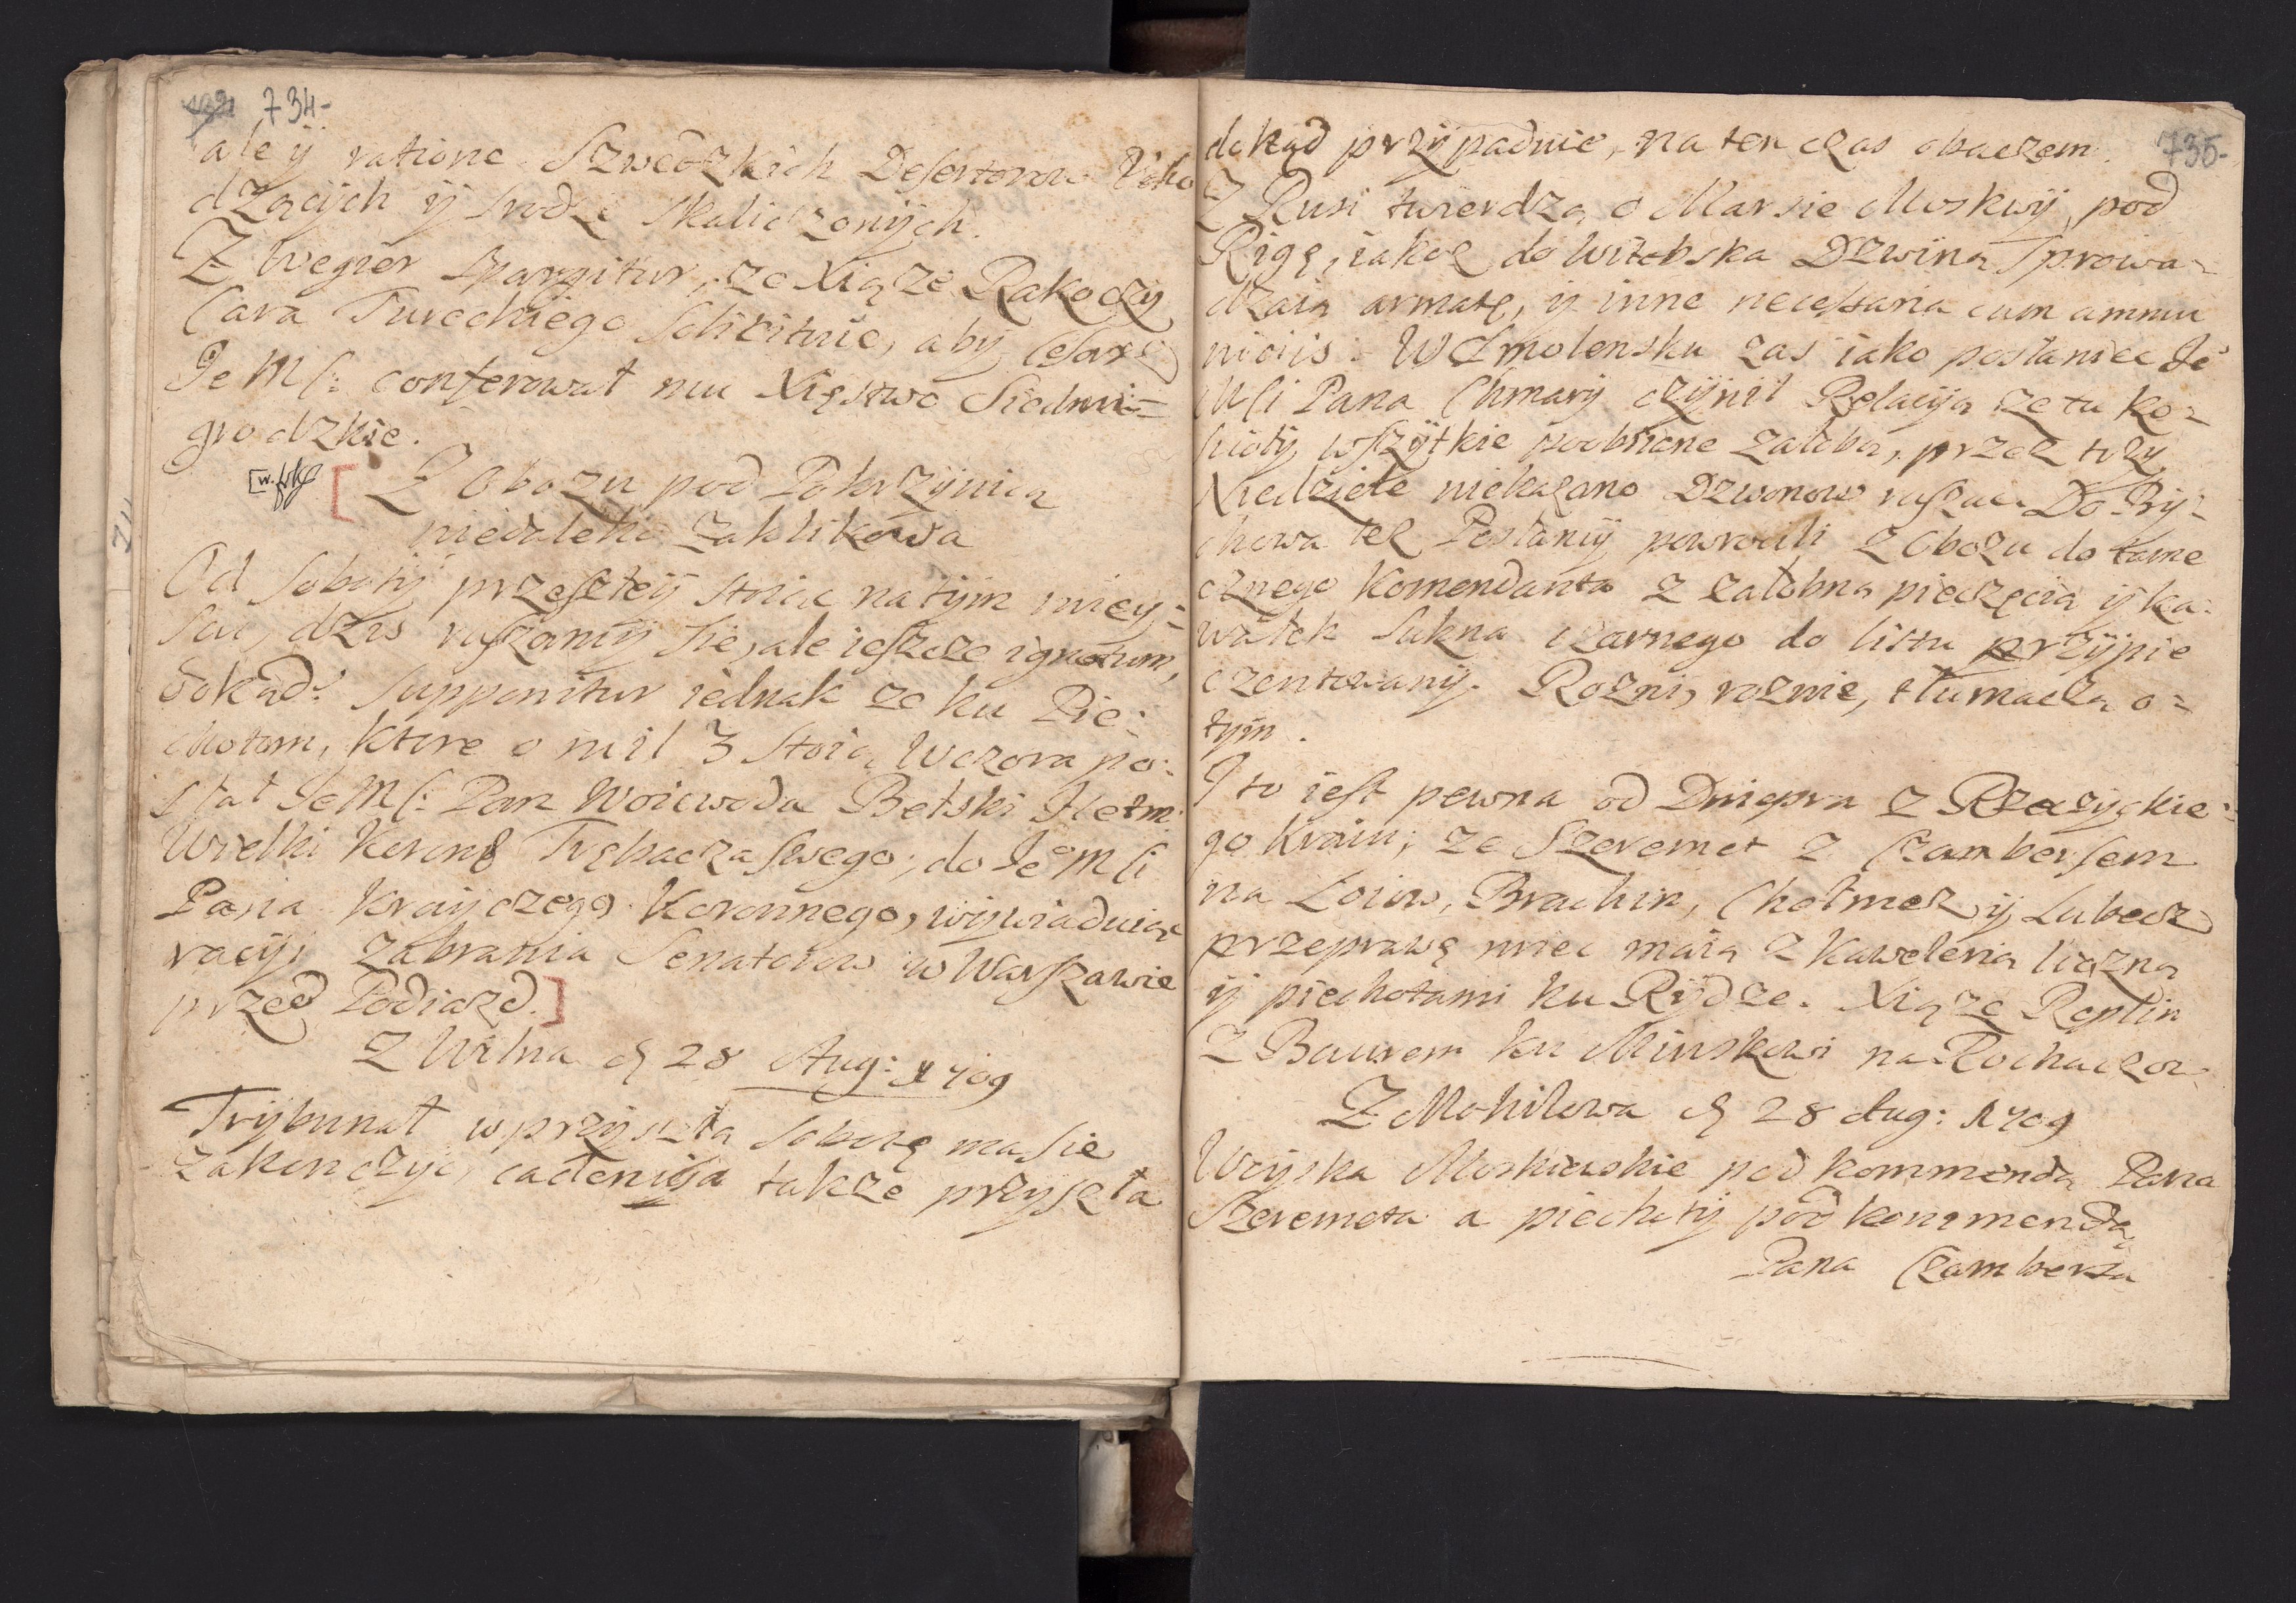 734-
ale ÿ ratione Szwedzkich Desertorow Ucho
dzących ÿ srodze skaliczonÿch.
Z Węgier spargitur, ze Xiąze Rakoczy
Cara Tureckiego Solicituie, aby Cesarz
Je Mſć: conferował mu Xięstwo Siedmi=
grodzkie.
Z Obozu pod Pokrzÿnicą
niedaleko Zaklikowa
Od Sobotÿ przeszłeÿ stoiąc na tÿm mieÿ=
scu, dzis ruszamÿ sie, ale ieszcze ignotum,
dokąd? Supponitur iednak ze ku Pie:
chotom, ktore o mil 3 stoią Wczora po:
słał JeMſć: Pan Woiewoda Bełski Hetm:
Wielki Koronÿ Trębacza swego, do JeMſći
Pana Kraÿczego Koronnego, wÿwiaduiąc
racÿi zabrania Senatorow w Warszawie
przed Podiazd.
Z Wilna d 28 Aug: 1709
Trÿbunał w przÿszłą Sobotę ma sie
zakonczÿc, cadencÿa takze przyszła
735-
dokąd przÿpadnie, na ten czas obaczem.
Z Rusi twierdzą o Marsie Moskwÿ, pod
Rigę, iakoz do Witebska Dzwiną Sprowa=
dzaią armatę, ÿ inne necessaria cum ammu
nitiis. W Smolensku zas iako posłaniec Je
Mſći Pana Chmarÿ czÿnił Relacÿą ze tu ko=
scioły wszÿtkie poobiiane załobą, przez trzy
Niedziele niekazano Dzwonow ruszac. Do Bÿ=
chowa tez Posłanÿ powrocili z Obozu do tame
cznego Komendanta z załobną pieczęcią ÿ ka=
wałek sukna czarnego do listu przÿpie
czentowanÿ. Rozni, roznie, tłumaczą o=
tÿm.
I to iest pewna od Dniepru z Rzeczÿckie=
go kraiu; ze Szeremet z Czambersem
na Łoiow, Brachin, Chołmecz ÿ Lubecz
przeprawę miec maią z kawalerią liczną
ÿ piechotami ku Rÿdze. Xiąze Replin
z Baurem ku Minskowi na Rochaczow.
Z Mohilowa d 28 Aug: 1709
Woÿska Moskiewskie pod kommendą Pana
Szeremeta a piechotÿ pod kommendą
Pana Czambersa